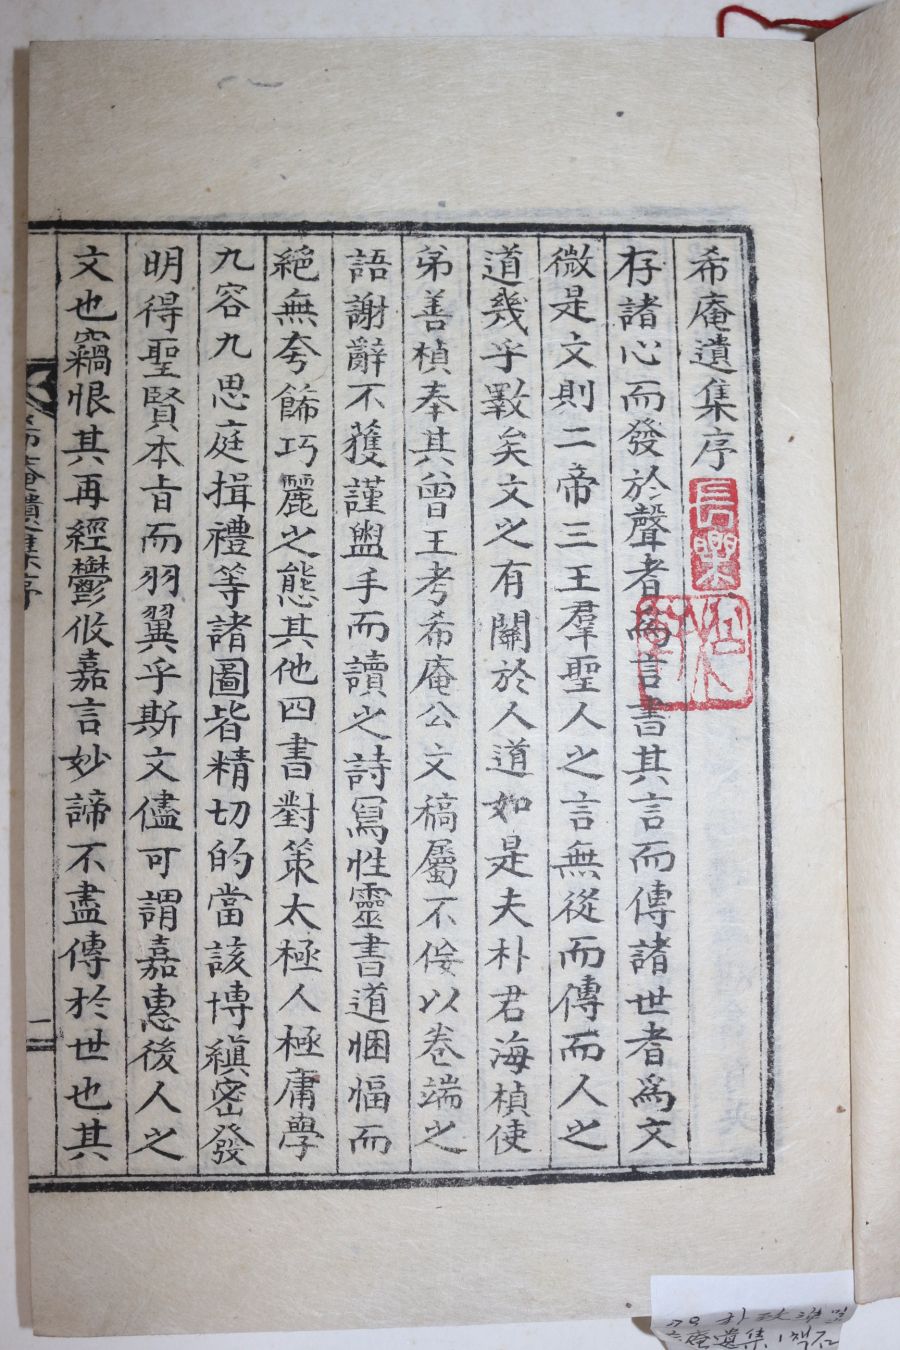 希庵遺集序
存諸心而發於聲者爲言書其言而傳諸世者爲文
微是文則二帝三王羣聖人之言無從而傳而人之
道幾乎斁矣文之有關於人道如是夫朴君海楨使
弟善楨奉其曾王考希庵公文稿屬不佞以卷端之
語謝辭不獲謹盥手而讀之詩寫性靈書道悃愊而
絕無夸飾巧麗之態其他四書對策太極人極庸學
九容九思庭揖禮等諸圖皆精切的當該博縝密發
明得聖賢本旨而羽翼乎斯文儘可謂嘉惠後人之
文也竊恨其再經鬱攸嘉言妙諦不盡傳於世也其
希庵遺集序
長樂
庵遺集 1책